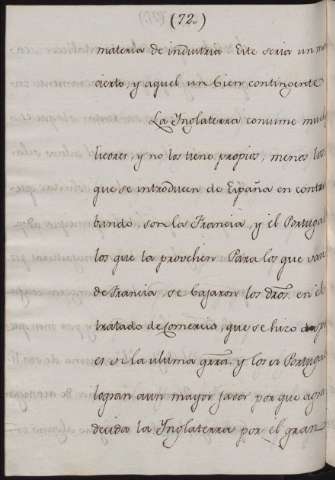 (72.)
materia de industria Este seria un m
cierto, y aquel un bien contingente
La Inglaterra consume muc
licores, y no los tiene propios, menos los
que se introducen de España en contra
bando, son la Francia, y el Portuga
los que la provehen Para los que van
de Francia, se bajaron los dros. en el
tratado de Comercio, que se hizo
es de la ultima grrã. y los
logran aun mayor favor por que agra
decida la Inglaterra por el gran